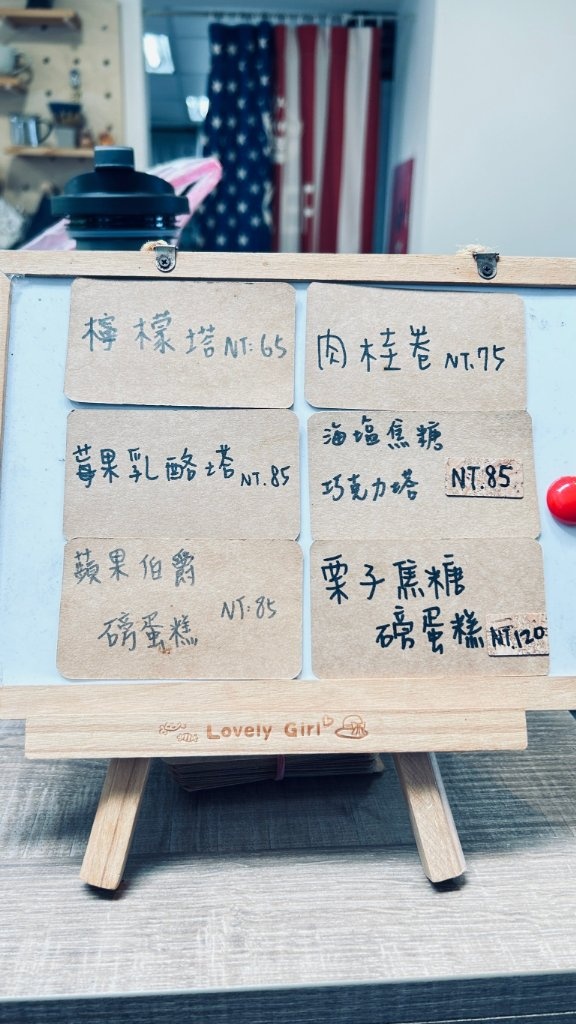 檸檬塔 NT:65
肉桂卷 NT.75
莓果乳酪塔 NT.85
海塩焦糖
巧克力塔 NT.85
蘋果伯爵
磅蛋糕 NT.85
栗子焦糖
磅蛋糕 NT.120
Lovely Girl